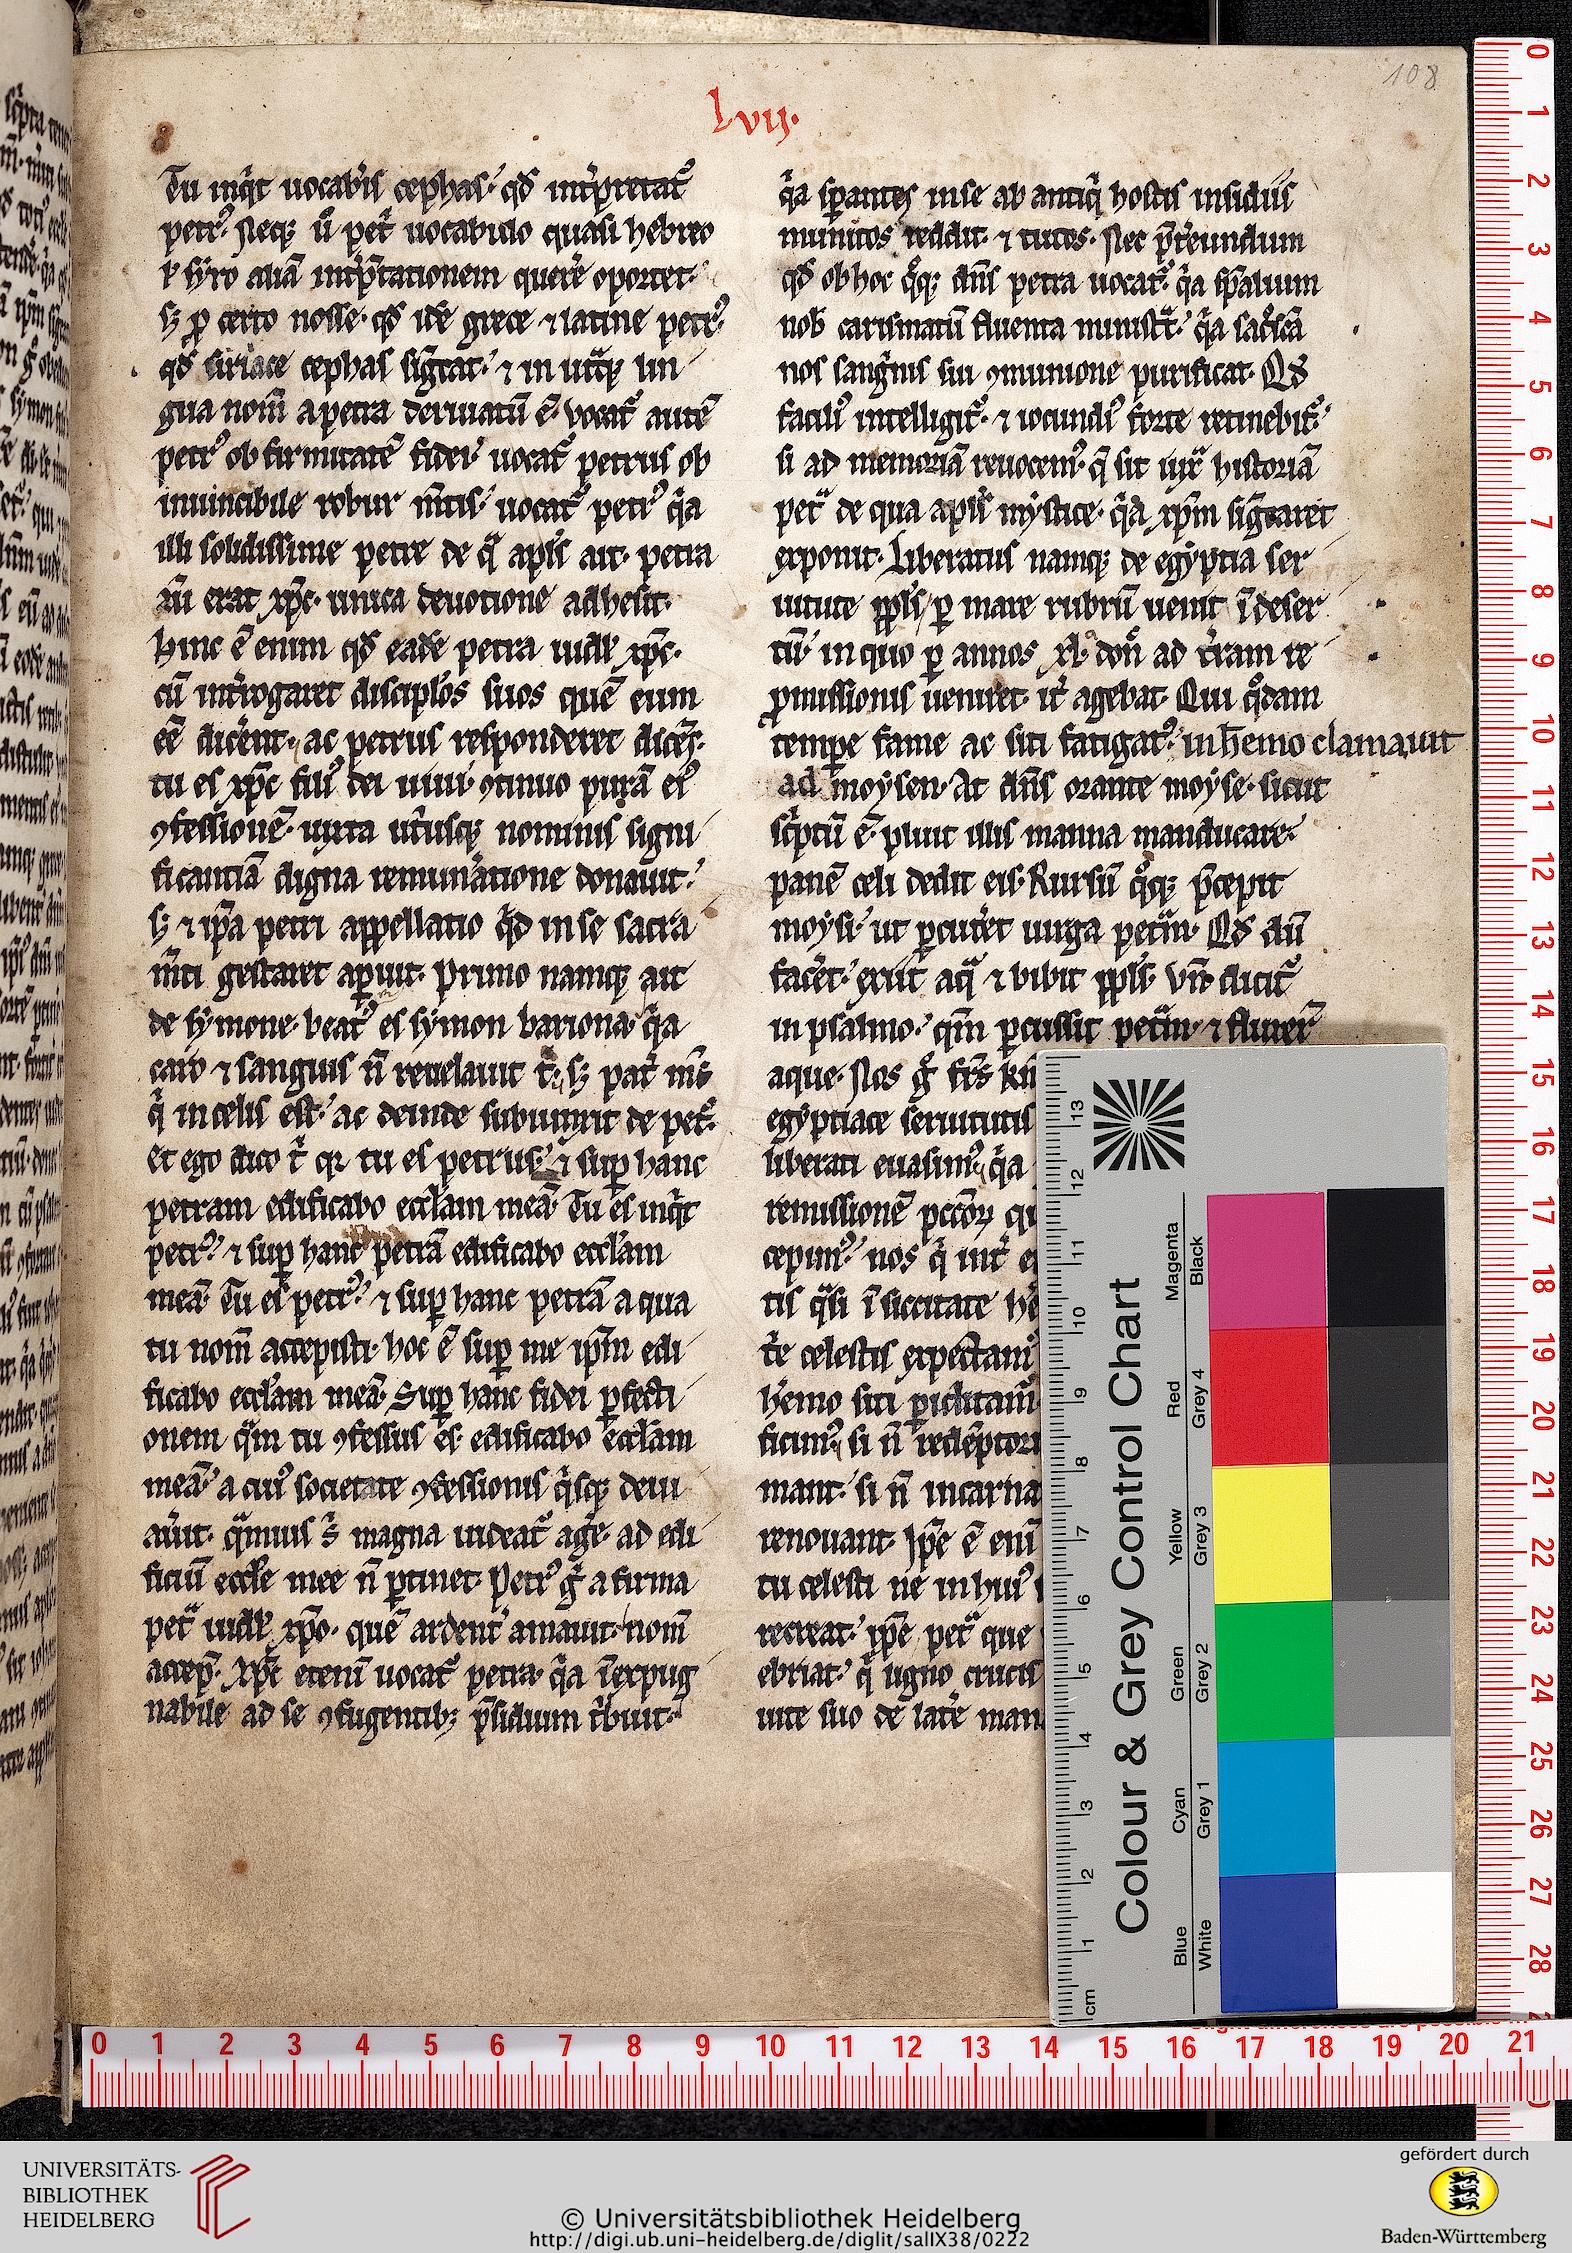 108
Lvij.
Tu inqͥt uocab̾is cephas. qd̾ int̾pretat᷑
petrꝰ. Neqꝫ u̾o pet͛ uocabulo quasi hebreo
ł syro aliā int̾p̄tationem quere̾ oportet.
sꝫ ꝓ certo nosse. qd̾ idē grece ⁊ latine petrꝰ.
qd̾ siriace cephas sigͣt. ⁊ in utͣqꝫ lin
gua nom̄ a petra deriuatū ē. vocat᷑ autē
petrꝰ ob firmitatē fidei. uocat᷑ petrus ob
inuincibile robur m̄tis. uocat᷑ petrꝰ qͥa
illi solidissime petre de qͣ apl̾s ait. petra
aū erat xp̄c. unica deuotione adhesit.
hinc ē enim qd̾ eadē petra uidł xp̄c.
cū int̾rogaret discipl̾os suos quē eum
eē dice̾nt. ac petrus responderet dicēs.
tu es xp̄c filiꝰ dei uiui. ꝯtinuo purā eiꝰ
ꝯfessionē. iuxta ut̾usqꝫ nominis signi
ficantiā digna remun̾atione donauit.
sꝫ ⁊ ip̄a petri appellatio qͥd in se sacra
m̄ti gestaret aꝑuit. Primo namqꝫ ait
de symone. beatꝰ es symon bariona. qͥa
caro ⁊ sanguis n̄ reuelauit tͥ. sꝫ pat͛ m̄s
qͥ in celis est. ac deinde subiunxit de pet͛.
Et ego dico tͥ qꝛ tu es petrus. ⁊ suꝑ hanc
petram edificabo eccl̾am meā. Tu es inqͥt
petrꝰ. ⁊ suꝑ hanc petrā edificabo eccl̾am
meā. Tu es petrꝰ. ⁊ suꝑ hanc petrā a qua
tu nom̄ accepisti. hoc ē suꝑ me ip̄m edi
ficabo eccl̾am meā. Suꝑ hanc fidei ꝑfecti
onem qͣm tu ꝯfessus es. edificabo eccl̾am
meā. a cuiꝰ societate ꝯfessionis qͥsqꝫ deui
au̾it. qͣmuis s̾ magna uideat᷑ age̾. ad edi
ficiū eccl̾e mee n̄ ꝑtinet. Petrꝰ gͦ a firma
petͣ uidł xp̄o. quē ardent̾ amauit. nom̄
accep̄. Xp̄c etenī uocat᷑ petra. qͥa īexpug
nabile ad se ꝯfugentibꝫ p̄sidium tͥbuit.
qͥa sꝑantes in se ab antiqͥ hostis insidiis
munitos reddit. ⁊ tutos. Nec p̄te̾undum
qd̾ ob hoc qͦqꝫ dn̄s petra uocat᷑. qͥa sp̄alium
nob̾ carismatū fluenta ministͣt. qͥa sacͦs̄cā
nos sangͥnis sui ꝯmunione purificat. Qd̾
faciliꝰ intelligit᷑. ⁊ iocundiꝰ forte retinebit᷑.
si ad memoriā reuocemꝰ. q̄ sit iux̾ historiā
petͣ de qua apl̾s mystice. qͥa xp̄m sigͣtaret
exponit. Liberatus namqꝫ de egyptia ser
uitute ppl̾s ꝑ mare rubrū uenit ī deser
tū. in quo ꝑ annos xl. don̾ ad t̾ram re
ꝓmissionis ueniret. it̾ agebat. Qui qͦdam
tempe̾ fame ac siti fatigatꝰ. in h̾emo clamauit
ad moysen. At dn̄s orante moyse. sicut
scͥptū ē. pluit illis manna manducare.
panē celi dedit eis. Rursū qͦqꝫ p̄cepit
moysi. ut ꝑcute̾t uirga petͣm. Qd̾ dū
face̾t. exiit aqͣ ⁊ bibit ppl̾s. Vn̄ dicit᷑
in psalmo. qm̄ ꝑcussit petͣm. ⁊ fluxer̄
aque. Nos gͦ fr̄s
egyptiace seruitutis
liberati euasimꝰ. qͥa
remissionē pccōꝝ
cepimꝰ. nos qͥ int̾
tis qͣsi ī siccitate
t̾re celestis expectam
h̾emo siti ꝑiclitam
ficimꝰ. si n̄ redēptori
mant. si n̄ incarna
renouant. Ip̄e ē eni
tu celesti ne in huiꝰ
recreat. ip̄e petͣ que
ebriat. qͥ ligno crucis
uite suo de late̾ man
Colour & Grey Control Chart
Magenta
Black
Red
Grey 4
Yellow
Grey 3
Green
Grey 2
Cyan
Grey 1
Blue
White
cm 1 2 3 4 5 6 7 8 9 10 11 12 13
0 1 2 3 4 5 6 7 8 9 10 11 12 13 14 15 16 17 18 19 20 21 22 23 24 25 26 27 28
0 1 2 3 4 5 6 7 8 9 10 11 12 13 14 15 16 17 18 19 20 21
UNIVERSITÄTS-
BIBLIOTHEK
HEIDELBERG
© Universitätsbibliothek Heidelberg
http://digi.ub.uni-heidelberg.de/diglit/salIX38/0222
gefördert durch
Baden-Württemberg